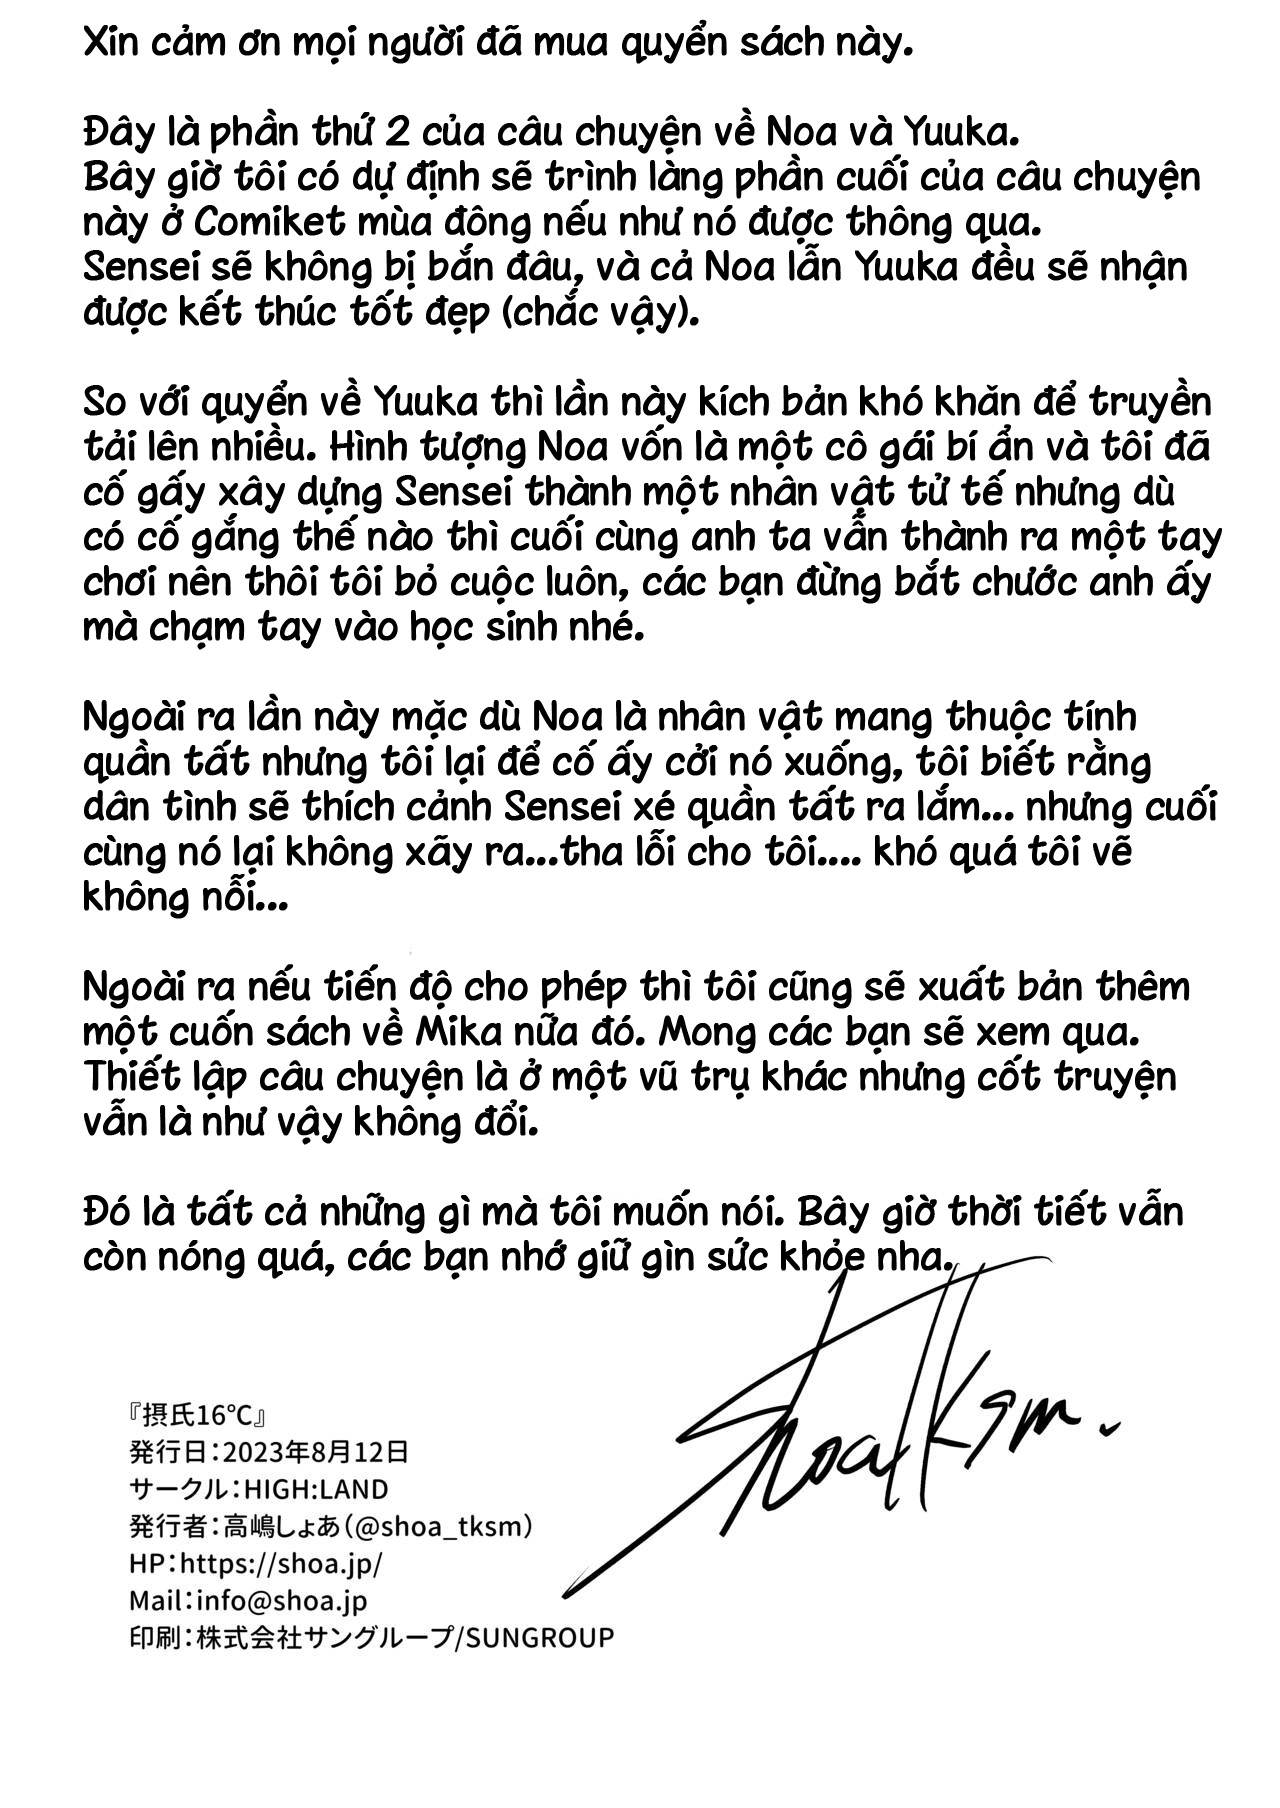 Xin cảm ơn mọi người đã mua quyển sách này.
Đây là phần thứ 2 của câu chuyện về Noa và Yuuka.
Bây giờ tôi có dự định sẽ trình làng phần cuối của câu chuyện
này ở Comiket mùa đông nếu như nó được thông qua.
Sensei sẽ không bị bắn đâu, và cả Noa lẫn Yuuka đều sẽ nhận
được kết thúc tốt đẹp (chắc vậy).
So với quyển về Yuuka thì lần này kích bản khó khăn để truyền
tải lên nhiều. Hình tượng Noa vốn là một cô gái bí ẩn và tôi đã
cố gấy xây dựng Sensei thành một nhân vật tử tế nhưng dù
có cố gắng thế nào thì cuối cùng anh ta vẫn thành ra một tay
chơi nên thôi tôi bỏ cuộc luôn, các bạn đừng bắt chước anh ấy
mà chạm tay vào học sinh nhé.
Ngoài ra lần này mặc dù Noa là nhân vật mang thuộc tính
quần tất nhưng tôi lại để cố ấy cởi nó xuống, tôi biết rằng
dân tình sẽ thích cảnh Sensei xé quần tất ra lắm... nhưng cuối
cùng nó lại không xãy ra...tha lỗi cho tôi.... khó quá tôi vẽ
không nỗi...
Ngoài ra nếu tiến độ cho phép thì tôi cũng sẽ xuất bản thêm
một cuốn sách về Mika nữa đó. Mong các bạn sẽ xem qua.
Thiết lập câu chuyện là ở một vũ trụ khác nhưng cốt truyện
vẫn là như vậy không đổi.
Đó là tất cả những gì mà tôi muốn nói. Bây giờ thời tiết vẫn
còn nóng quá, các bạn nhớ giữ gìn sức khỏe nha.
『摂氏16℃』
発行日：2023年8月12日
サークル：HIGH:LAND
発行者：高嶋しょあ（@shoa_tksm）
HP：https://shoa.jp/
Mail：info@shoa.jp
印刷：株式会社サングループ/SUNGROUP
ShoaTksm.